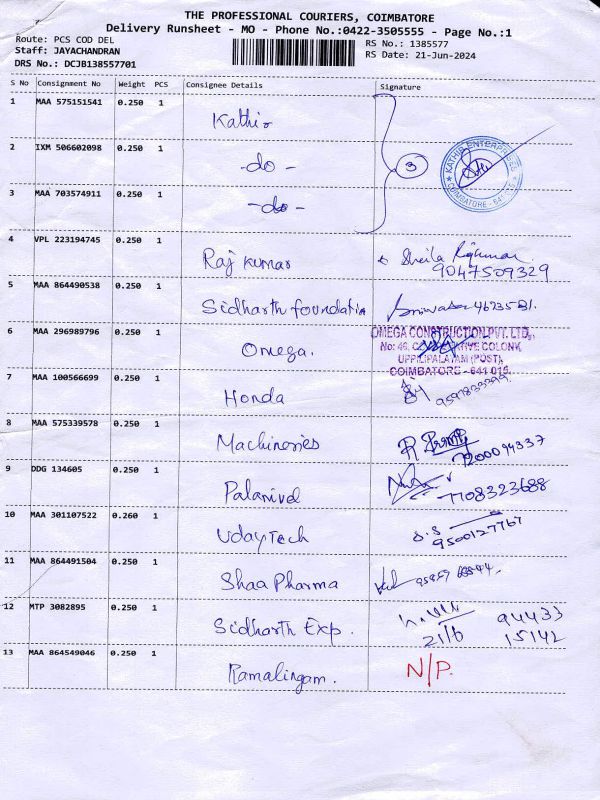 THE PROFESSIONAL COURIERS, COIMBATORE
Delivery Runsheet - MO - Phone No.:0422-3505555 - Page No.:1
Route: PCS COD DEL
Staff: JAYACHANDRAN
DRS No.: DCJB138557701
RS No.: 1385577
RS Date: 21-Jun-2024
S No Consignment No Weight PCS Consignee Details Signature
1 MAA 575151541 0.250 1 Kathir
2 IXM 506602098 0.250 1 -do- 3
KATHIR ENTERPRISES
COIMBATORE - 641
3 MAA 703574911 0.250 1 -do-
4 VPL 223194745 0.250 1 Raj kumar Sheila Rajkumar
9047509329
5 MAA 864490538 0.250 1 Sidharth foundatin
6 MAA 296989796 0.250 1 Omega.
OMEGA CONSTRUCTION PVT. LTD.,
No: 46, COLONY
UPPILIPALAYAM (POST),
COIMBATORE - 641 015.
7 MAA 100566699 0.250 1 Honda
8 MAA 575339578 0.250 1 Machineries
7200094337
9 DDG 134605 0.250 1 Palanivel
7708323688
10 MAA 301107522 0.260 1 UdayTech D.S
9500127767
11 MAA 864491504 0.250 1 Shaa Pharma
12 MTP 3082895 0.250 1 Sidharth Exp. 94433
21/6 15142
13 MAA 864549046 0.250 1 Ramalingam. N/P.